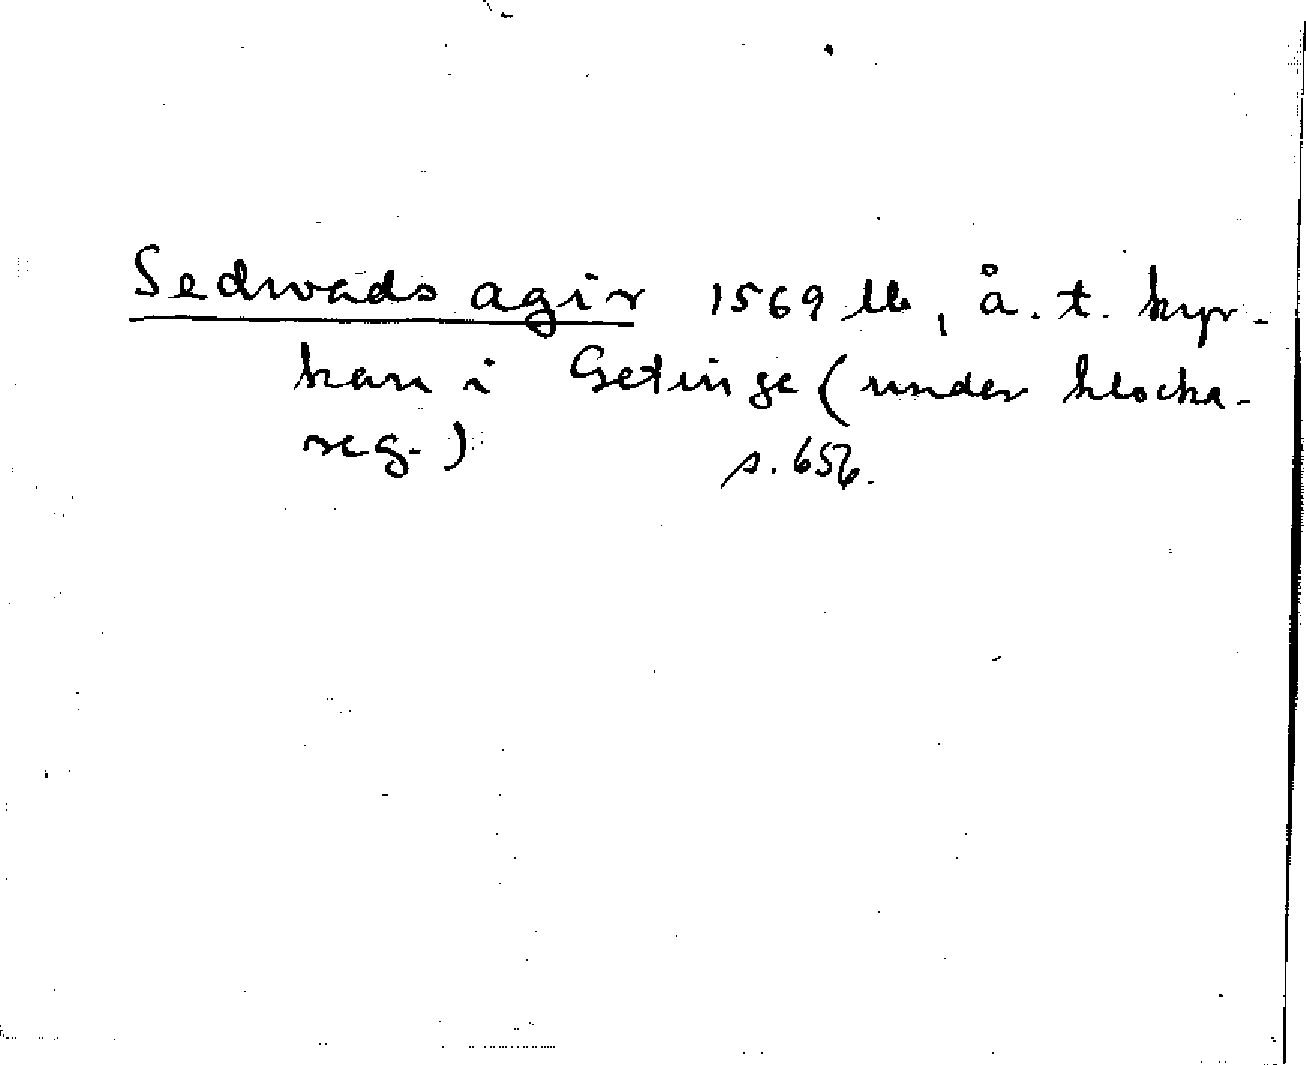 Sedwads agir 1569 lb, å. t. kyr-
kan i Getinge (under klocka-
reg.) s. 656.